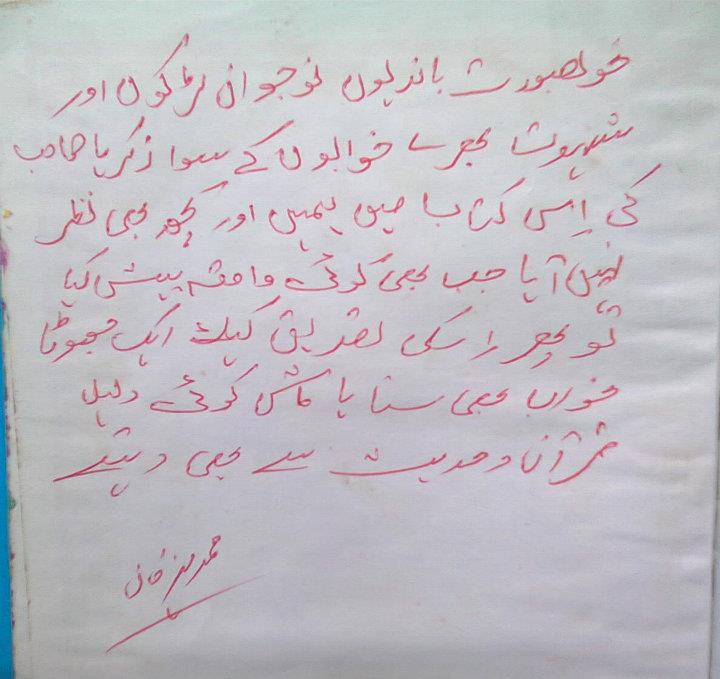 خوبصورت باندیوں نوجوان لڑکوں اور
شہوت بھرے خوابوں کے سوا زکریا صاحب
کی اِس کتاب میں ہمیں اور کچھ بھی نظر
نہیں آیا جب بھی کوئی واقعہ پیش کیا
تو پھر اسکی تصدیق کیلئے ایک جھوٹا
خواب بھی سنایا کاش کوئی دلیل
قرآن و حدیث سے بھی دیتے
محمد خان